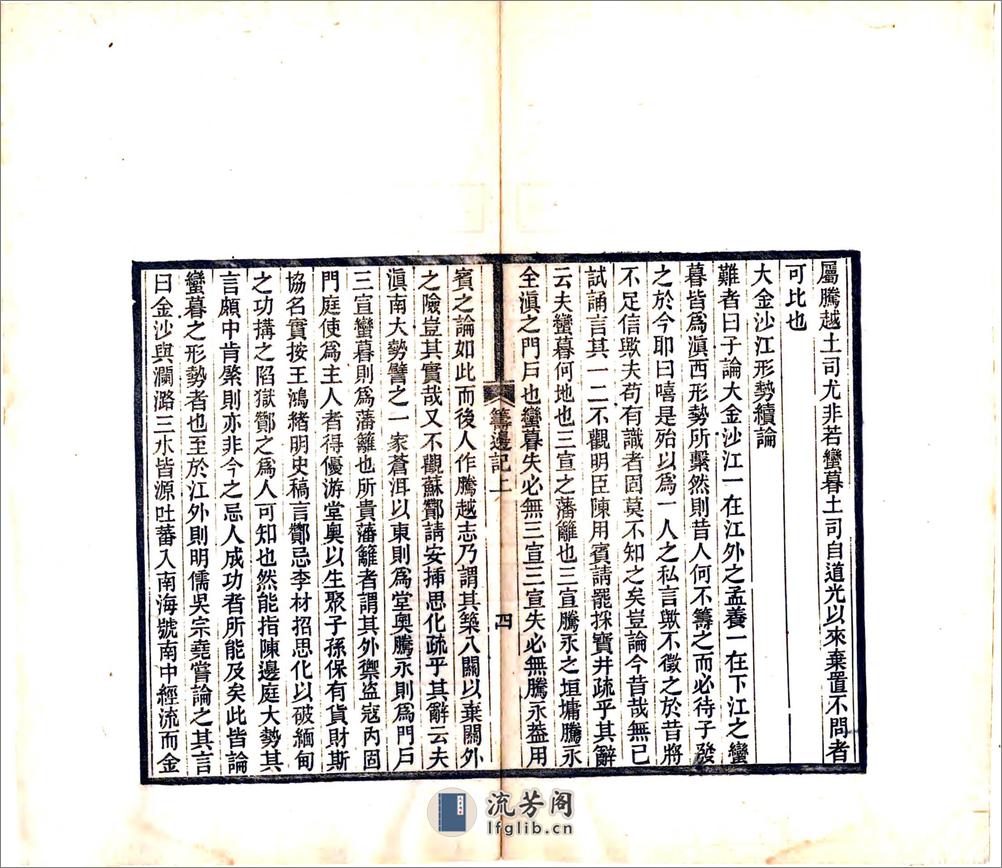 屬騰越土司尤非若蠻暮土司自道光以來棄置不問者
可比也
大金沙江形勢續論
難者曰子論大金沙江一在江外之孟養一在下江之蠻
暮皆爲滇西形勢所繫然則昔人何不籌之而必待子發
之於今耶曰嘻是殆以爲一人之私言歟不徵之於昔將
不足信歟夫苟有識者固莫不知之矣豈論今昔哉無已
試誦言其一二不觀明臣陳用賓請罷採寶井疏乎其辭
云夫蠻暮何地也三宣之藩籬也三宣騰永之垣墉騰永
全滇之門戶也蠻暮失必無三宣三宣失必無騰永葢用
籌邊記上
四
賓之論如此而後人作騰越志乃謂其築八關以棄關外
之險豈其實哉又不觀蘇酇請安揷思化疏乎其辭云夫
滇南大勢譬之一家蒼洱以東則爲堂奧騰永則爲門戶
三宣蠻暮則爲藩籬也所貴藩籬者謂其外禦盜寇內固
門庭使爲主人者得優游堂奧以生聚子孫保有貨財斯
協名實按王鴻緒明史稿言酇忌李材招思化以破緬甸
之功搆之陷獄酇之爲人可知也然能指陳邊庭大勢其
言頗中肯綮則亦非今之忌人成功者所能及矣此皆論
蠻暮之形勢者也至於江外則明儒吳宗堯嘗論之其言
曰金沙與瀾潞三水皆源吐蕃入南海號南中經流而金
流芳阁
lfglib.cn